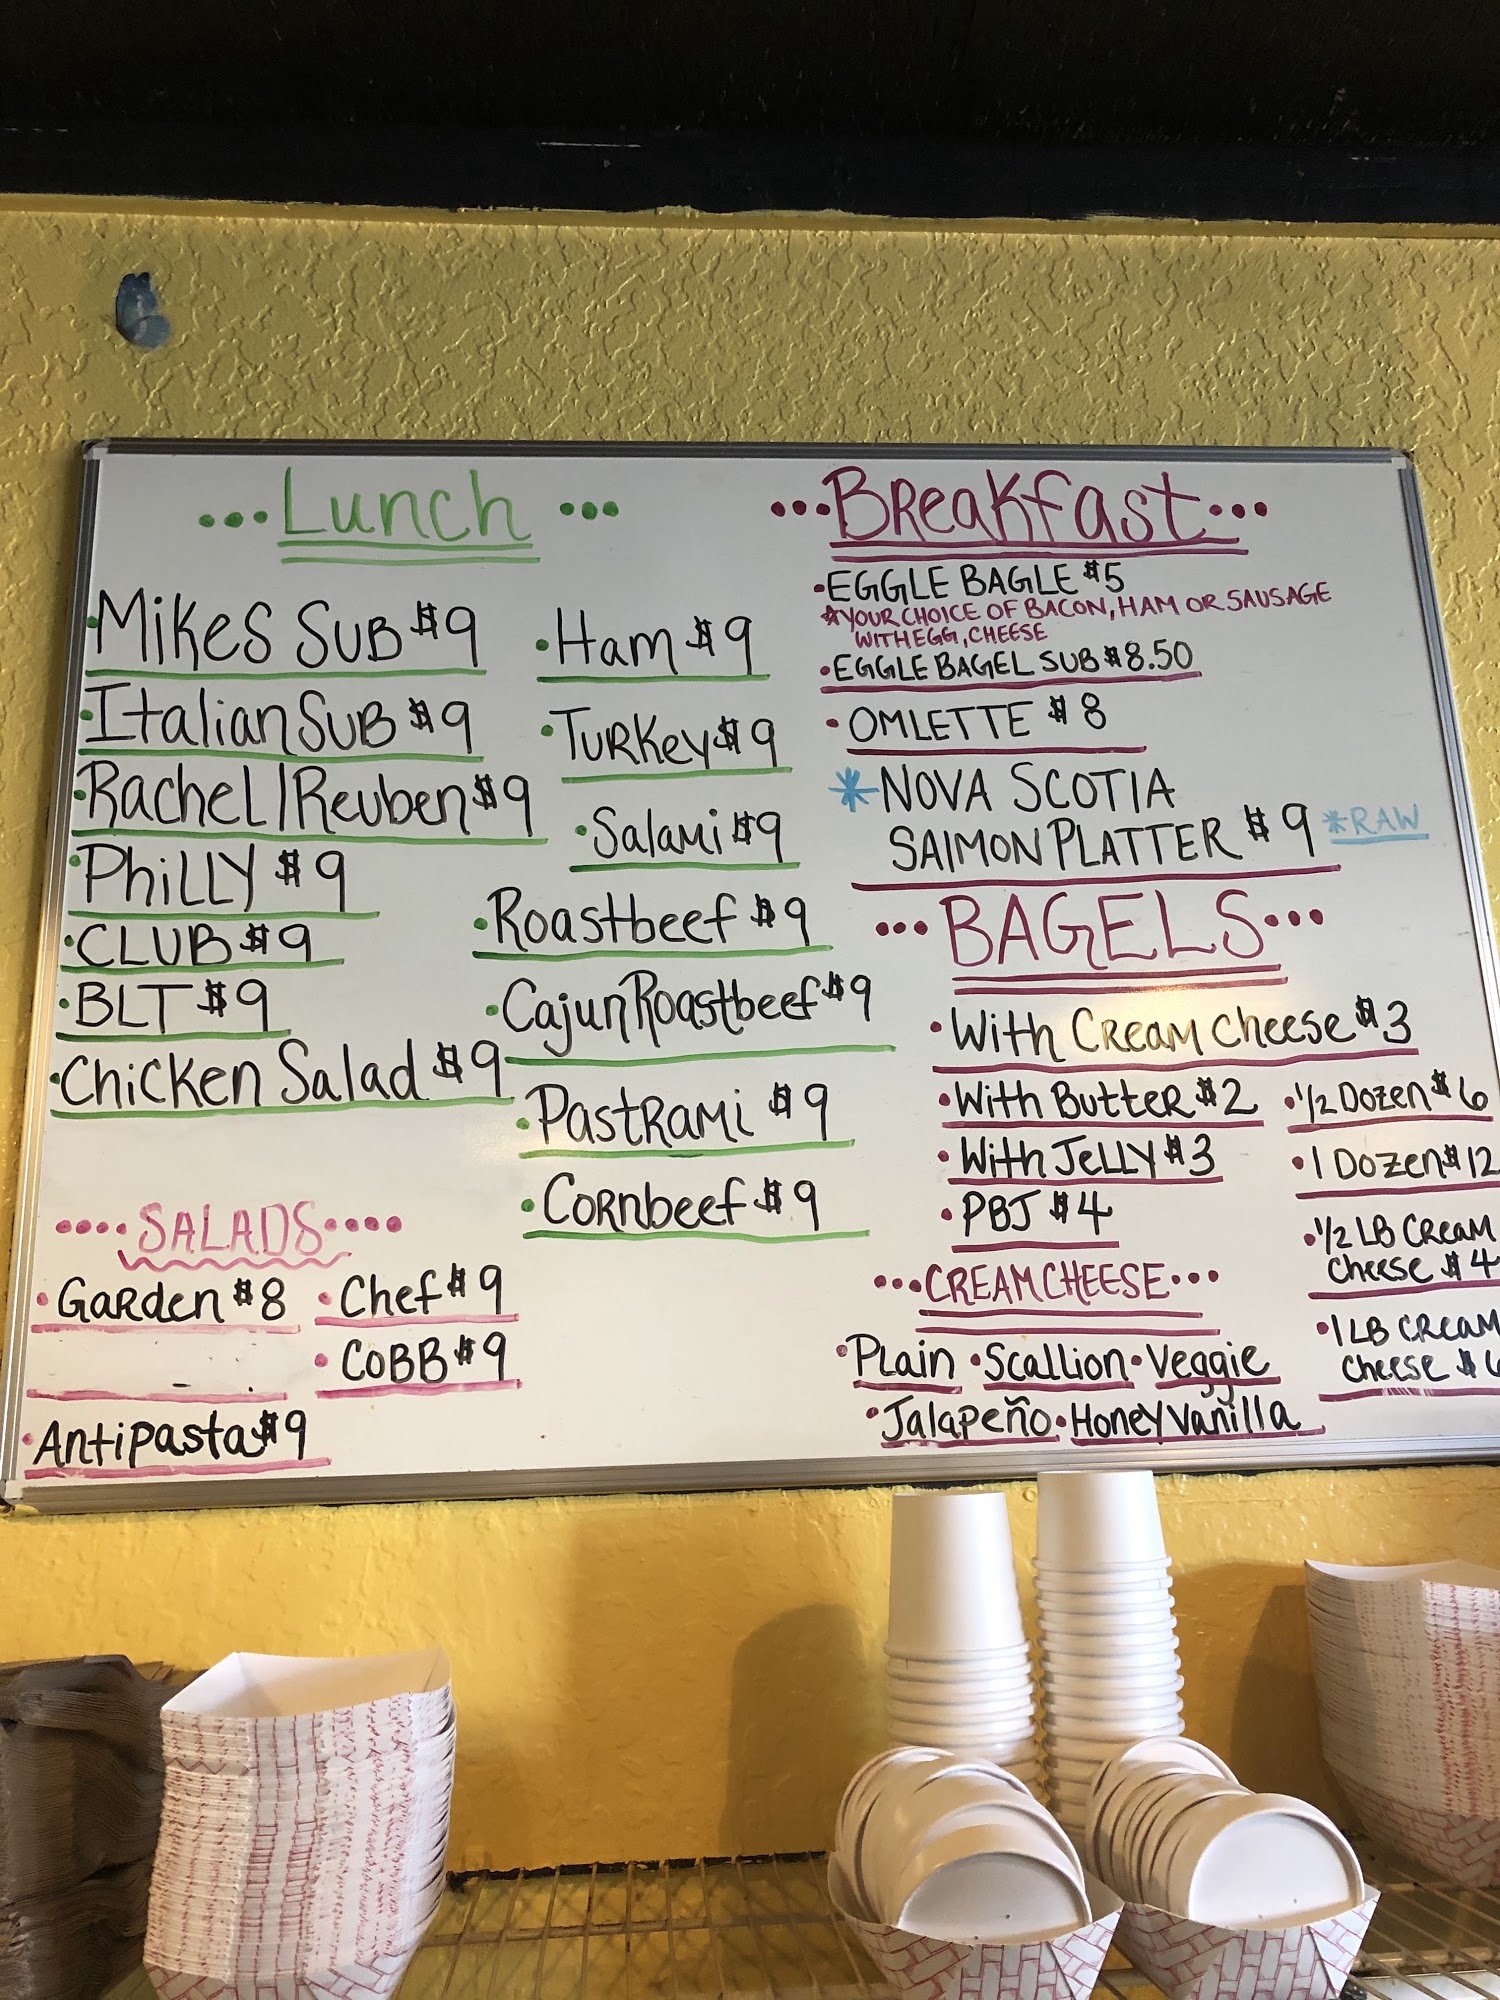 ...Lunch...
Mikes Sub $9
Italian Sub $9
Rachel/Reuben $9
Philly $9
CLUB $9
BLT $9
Chicken Salad $9
Ham $9
Turkey $9
Salami $9
Roastbeef $9
Cajun Roastbeef $9
Pastrami $9
Cornbeef $9
....SALADS....
Garden $8
Antipasta $9
Chef $9
COBB $9
...Breakfast...
EGGLE BAGLE $5
*YOUR CHOICE OF BACON, HAM OR SAUSAGE
WITH EGG, CHEESE
EGGLE BAGEL SUB $8.50
OMLETTE $8
*NOVA SCOTIA
SAlMON PLATTER $9 *RAW
...BAGELS...
With Cream Cheese $3
With Butter $2
With Jelly $3
PBJ $4
1/2 Dozen $6
1 Dozen $12
1/2 LB Cream
Cheese $4
1 LB Cream
Cheese $
...CREAM CHEESE...
Plain • Scallion • Veggie
Jalapeño • Honey Vanilla